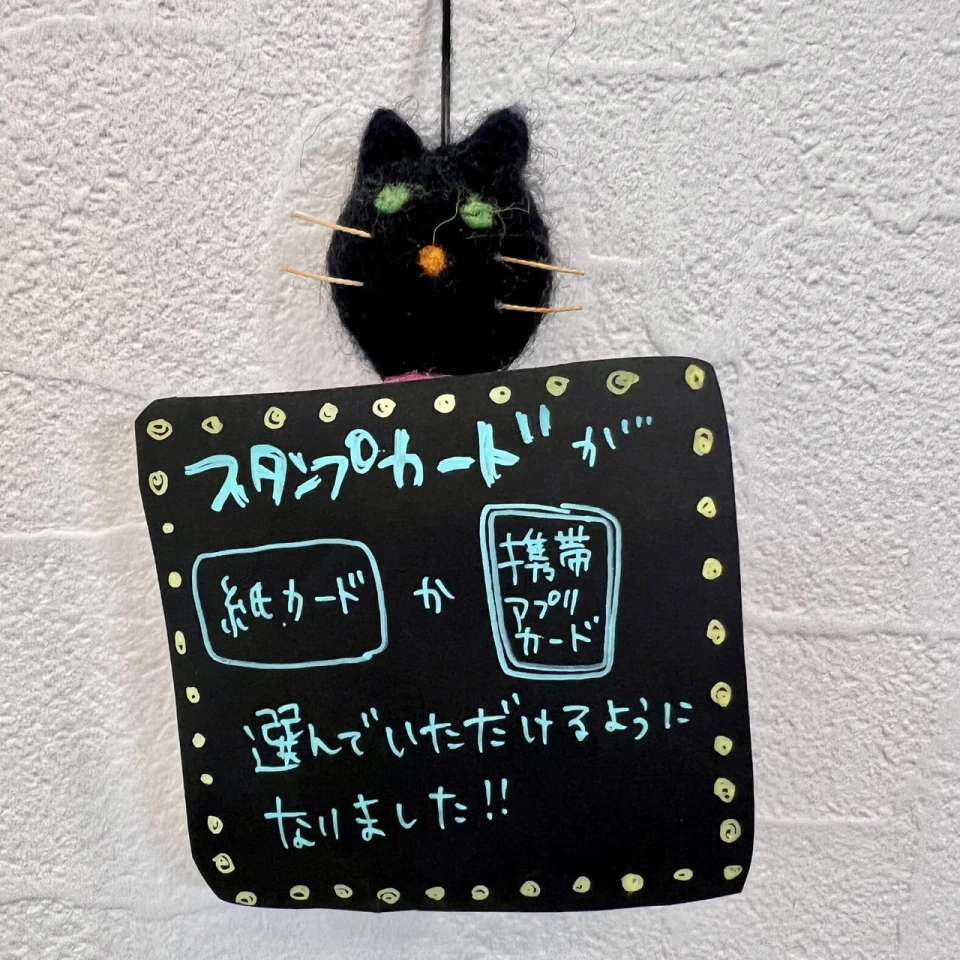 スタンプカードが
紙カード か 携帯
アプリ
カード
選んでいただけるように
なりました!!